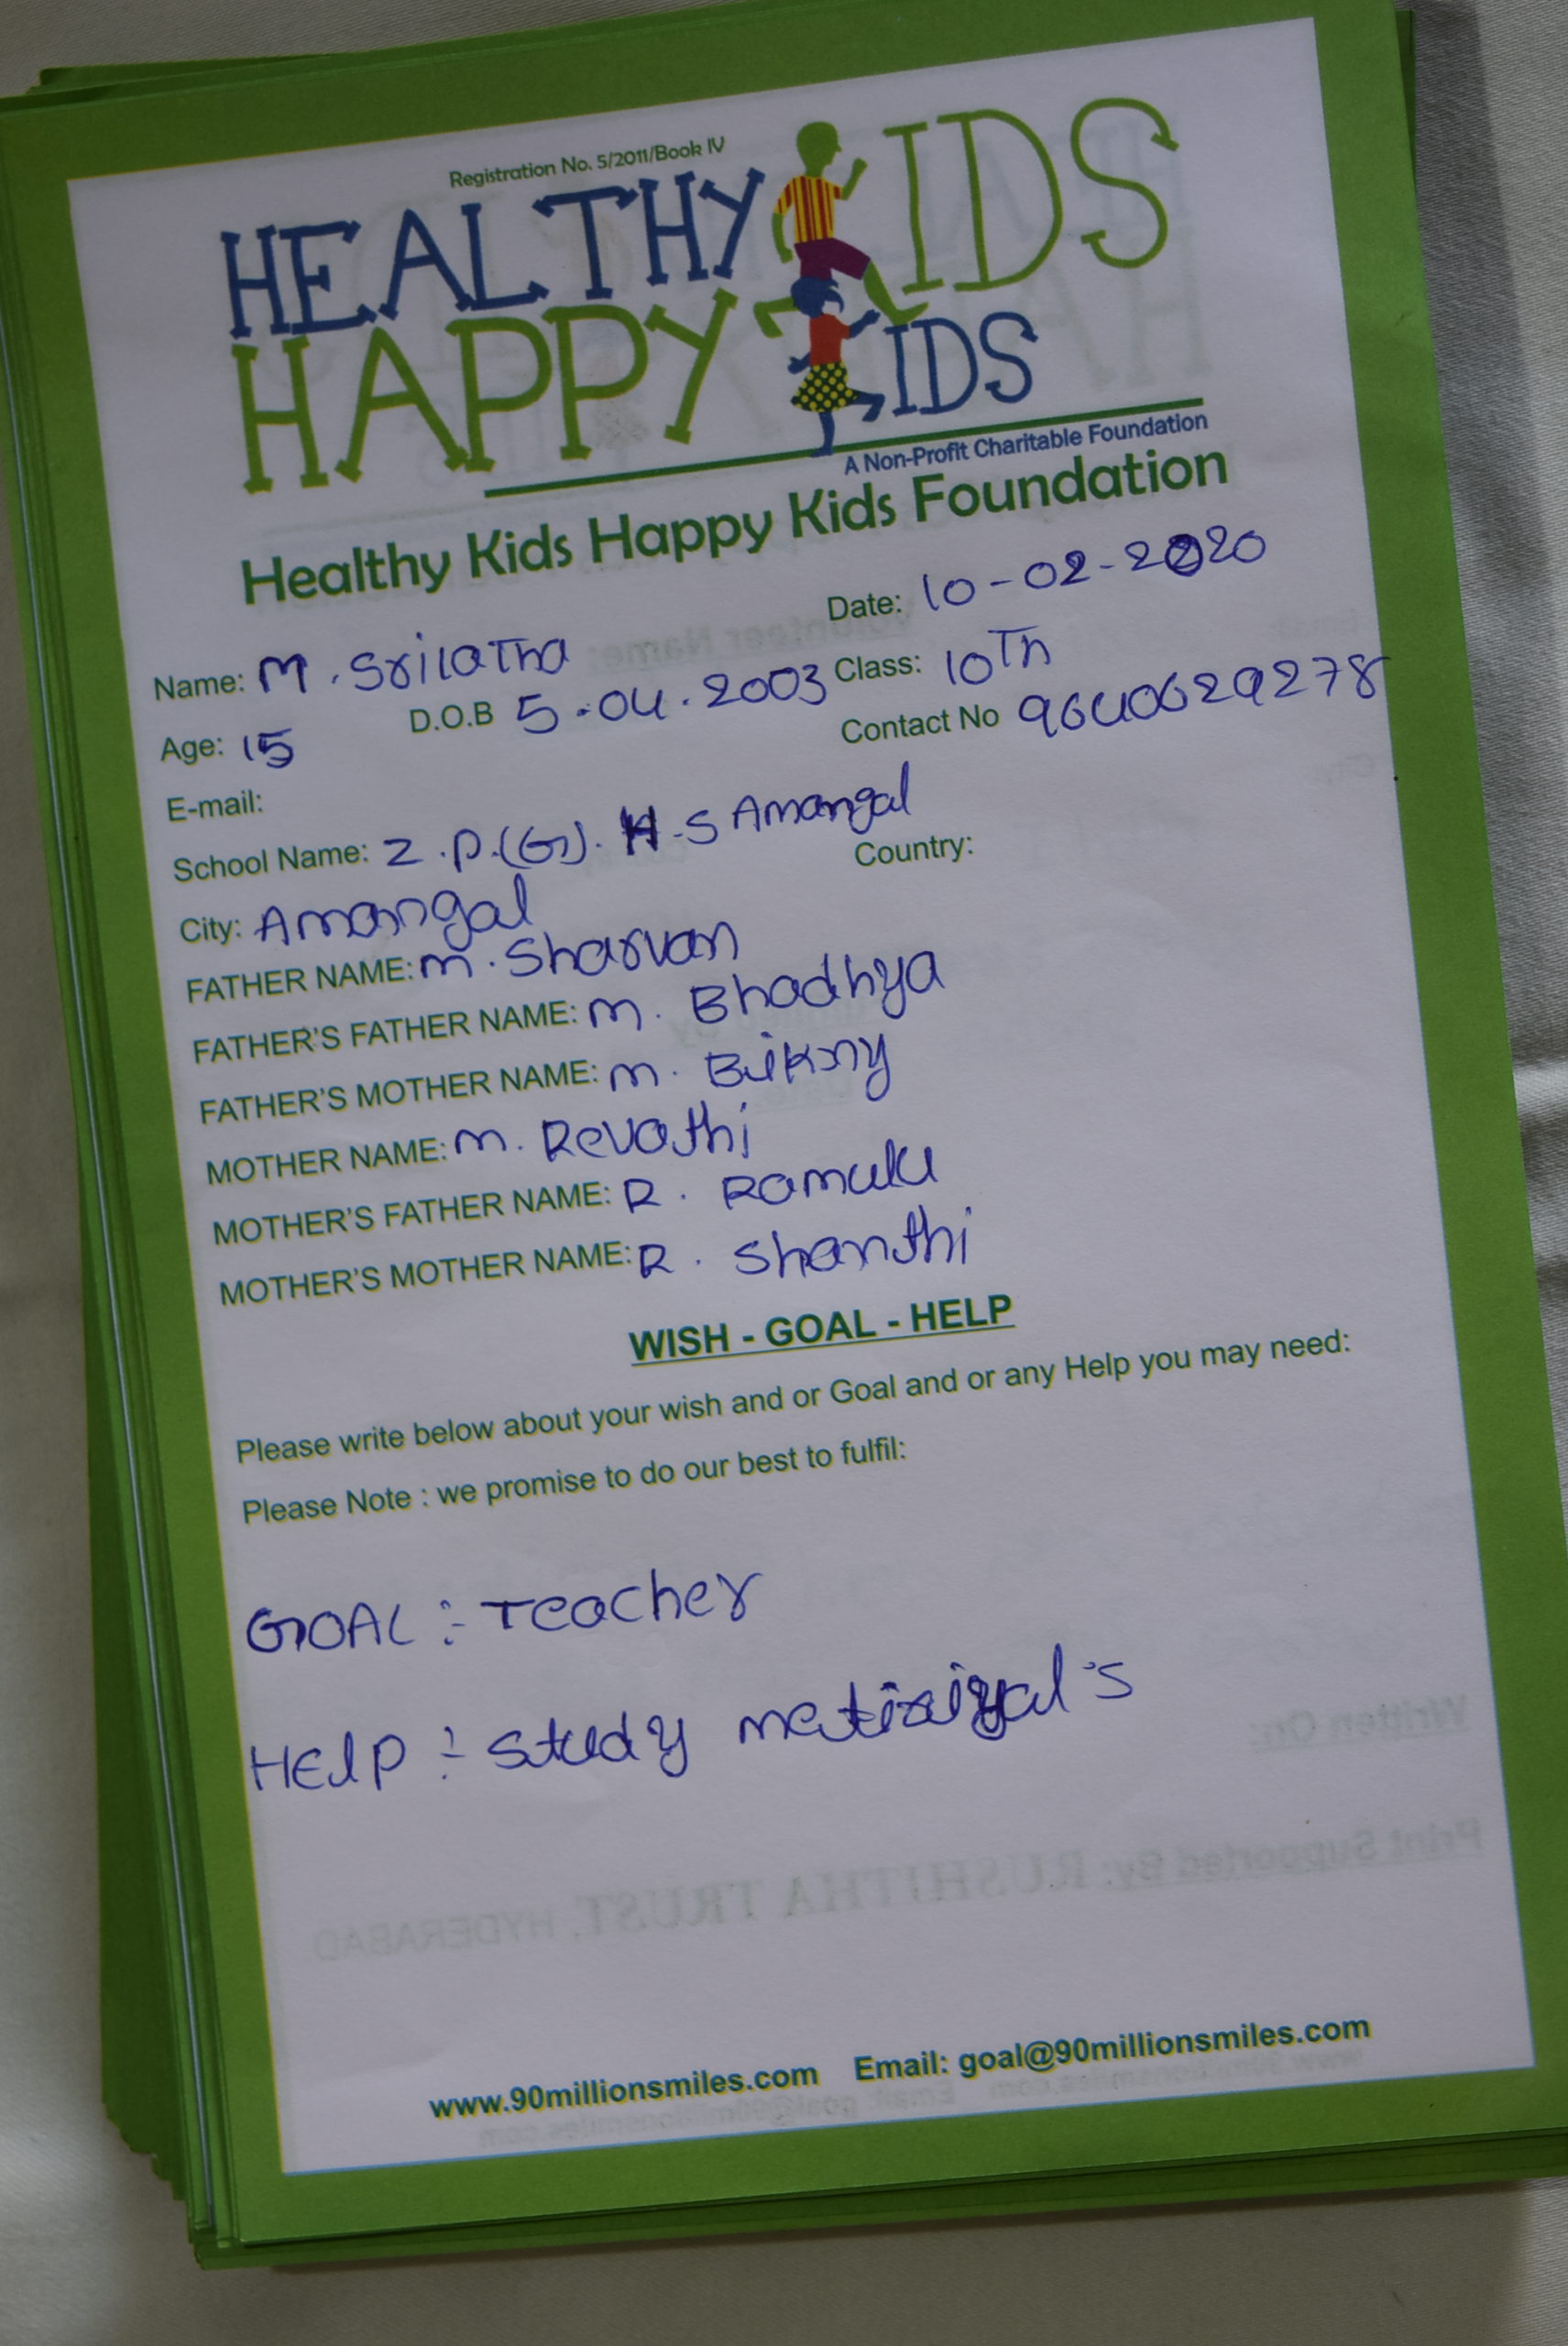 Registration No. 5/2011/Book IV
HEALTHY KIDS
HAPPY KIDS
A Non-Profit Charitable Foundation
Healthy Kids Happy Kids Foundation
Date: 10-02-2020
Name: M. Srilatha
Class: 10Th
Age: 15 D.O.B 5.04.2003
Contact No 9640629278
E-mail:
School Name: Z.P.(G). H.S Amangal
City: Amangal Country:
FATHER NAME: M. Sharvan
FATHER'S FATHER NAME: M. Bhadhya
FATHER'S MOTHER NAME: M.
MOTHER NAME: M. Revathi
MOTHER'S FATHER NAME: R. Ramulu
MOTHER'S MOTHER NAME: R. Shanthi
WISH - GOAL - HELP
Please write below about your wish and or Goal and or any Help you may need:
Please Note : we promise to do our best to fulfil:
GOAL :- Teacher
HElp :- study
www.90millionsmiles.com Email: goal@90millionsmiles.com